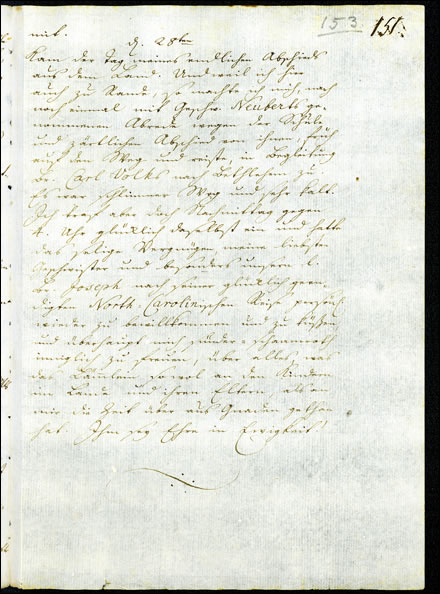 153 151.
mit.
d. 28ten
Kam der Tag meines endlichen Abschieds
aus dem Land. Und weil ich hier
auch zu Hand, so machte ich mich, nach
noch einmal mit Geschw. Neuberts ge-
nommenen Abrede wegen der Schule
und zärtlichen Abschied von ihnen, früh
auf den Weg und reiste, in Begleitung
Br. Carl Volks nach Bethlehem zu
Es war schlimmer Weg und sehr kalt.
Ich traf aber doch Nachmittag gegen
4. Uhr glücklich daselbst ein und hatte
das selige Vergnügen meine liebsten
Geschwister und besonders unsern l.
Br. Joseph nach seiner glücklich geen-
digten North-Carolinischen Reise
wieder zu bewillkommen und zu küssen
und überhaupt mich sünder-schaamroth
inniglich zu freuen, über alles was
das Lämmlein sowol an den Kindern
im Lande und ihren Eltern als an
mir die Zeit über aus Gnaden gethan
hat. Ihm sey Ehre in Ewigkeit!